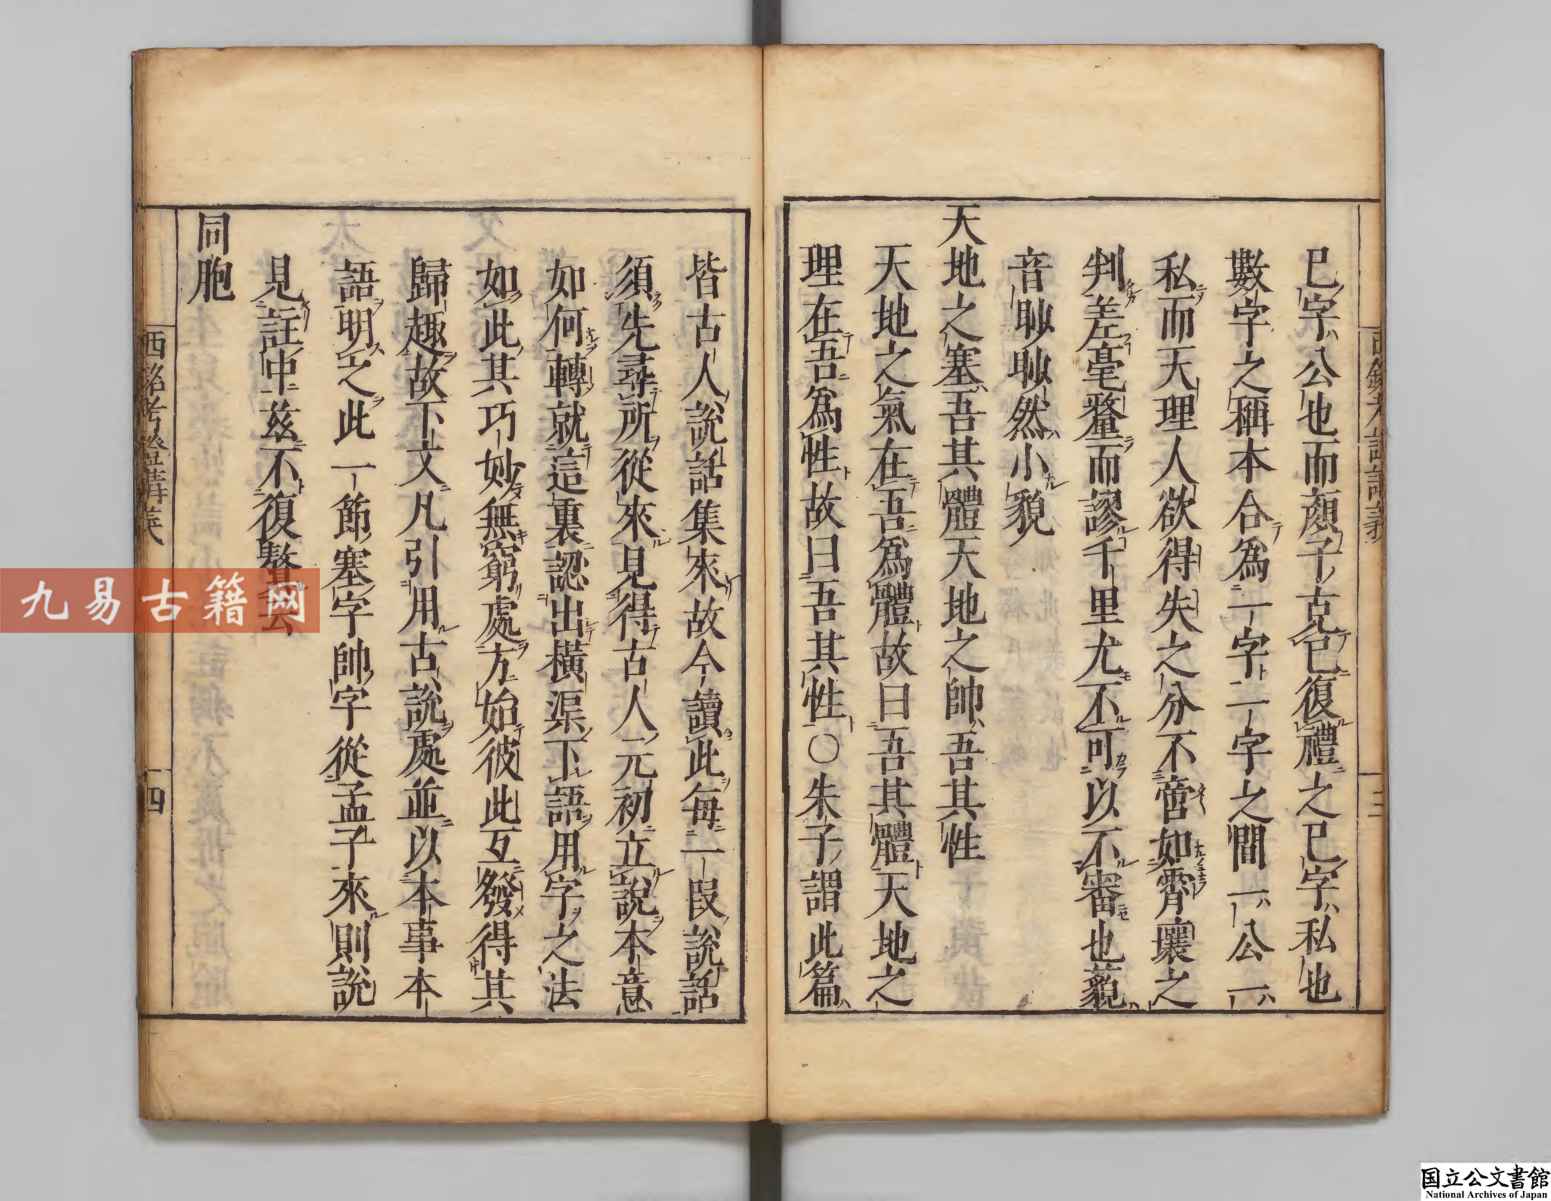 己字公也而顏子克己復禮之己字私也
數字之稱本合為一字一字之間一公一
私而天理人欲得失之分不啻如霄壤之
判差毫釐而謬千里尤不可以不審也藐
音眇眇然小貌
天地之塞吾其體天地之帥吾其性
天地之氣在吾為體故曰吾其體天地之
理在吾為性故曰吾其性〇朱子謂此篇
皆古人說話集來故今讀此每一段說話
須先尋所從來見得古人元初立說本意
如何轉就這裏認出橫渠下語用字之法
如此其巧妙無窮處方始彼此互發得其
歸趣故下文凡引用古說處並以本事本
語明之此一節塞字帥字從孟子來則說
見註中茲不復贅云
同胞
西銘考證講義
三
西銘考證講義
四
九易古籍网
国立公文書館
National Archives of Japan